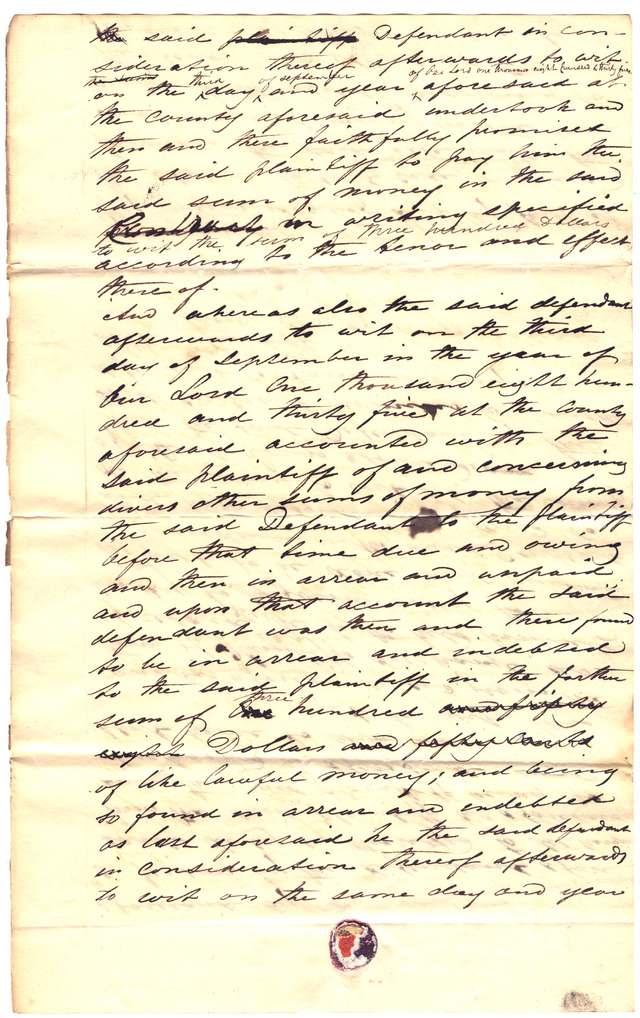 the said plaintiff Defendant in con-
sideration thereof afterwards to wit
the same third of september of our Lord one thousand eight hundred & thirty five
on the day and year aforesaid at
the county aforesaid undertook and
then and there faithfully promised
the said plaintiff to pay him the
said sum of money in the said
Contract in writing specified
to wit the sum of three hundred Dollars
according to the tenor and effect
there of.
And whereas also the said defendant
afterwards to wit on the third
day of September in the year of
our Lord One thousand eight hun-
dred and thirty five at the county
aforesaid accounted with the
said plaintiff of and concerning
divers other sums of money from
the said Defendant to the plaintiff
before that time due and owing
and then in arrear and unpaid
and upon that account the said
defendant was then and there found
to be in arrear and indebted
to the said plaintiff in the further
three
sum of One hundred and fifty
eight Dollars and fifty cents
of like lawful money; and being
so found in arrear and indebted
as last aforesaid he the said defendant
in consideration thereof afterwards
to wit on the same day and year